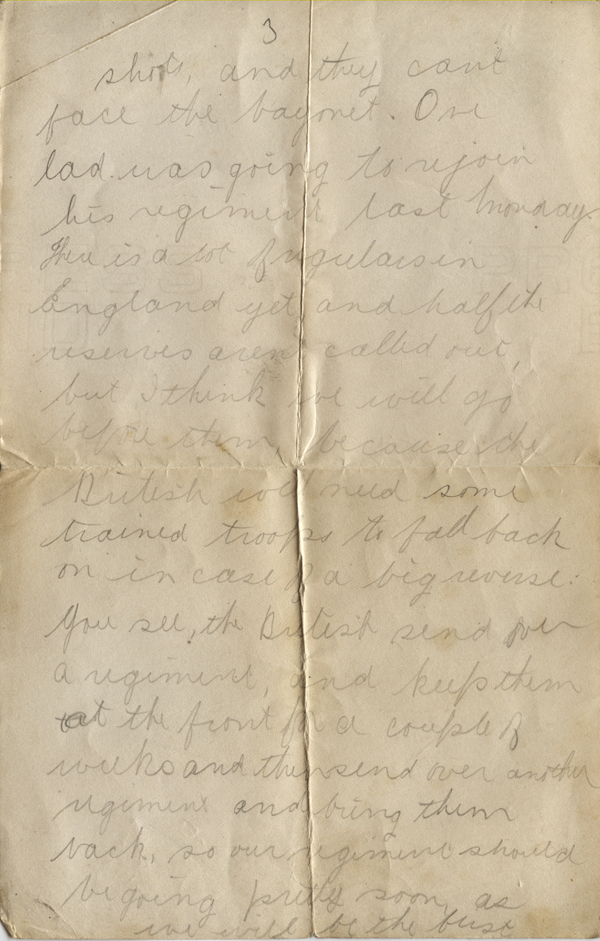 3
shots, and they cant
face the bayonet. One
lad was going to rejoin
his regiment last Monday.
There is a lot of regulars in
England yet and half the
reserves arent called out,
but I think we will go
before them, because the
British will need some
trained troops to fall back
on in case of a big reverse.
You see, the British send over
a regiment, and keep them
at the front for a couple of
weeks and then send over another
regiment and bring them
back, so our regiment should
be going pretty soon, as
we will be the best